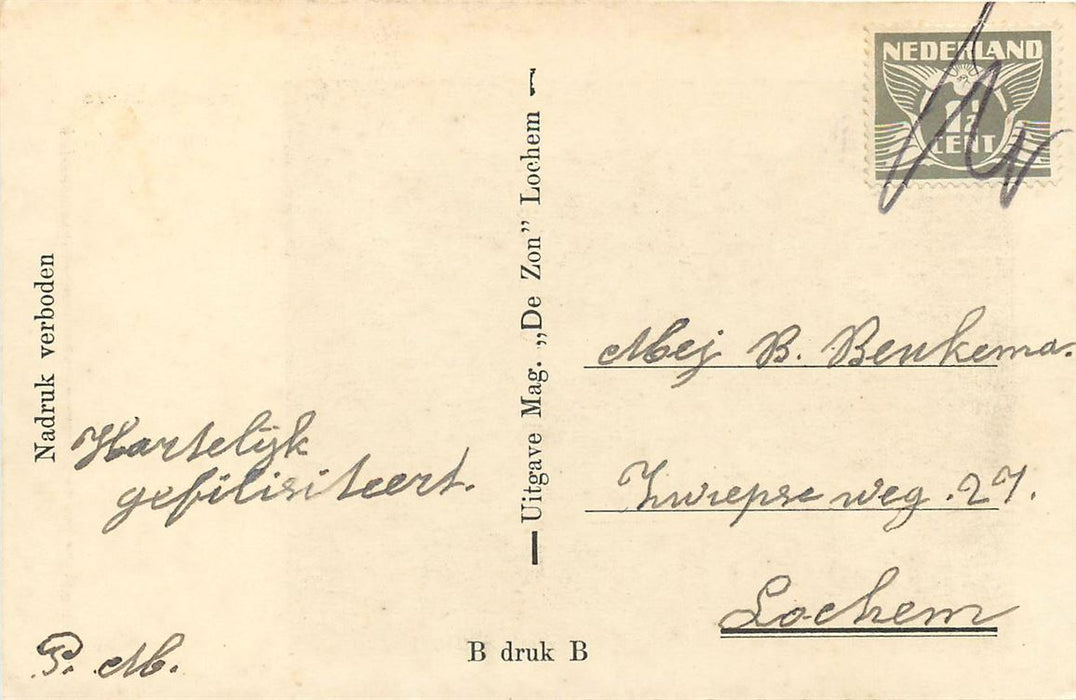 NEDERLAND
1½
CENT
Nadruk verboden
Uitgave Mag. „De Zon” Lochem
Mej B. Beukema.
Hartelijk
gefilisiteert.
Zwiepse weg. 27.
Lochem
P. M.
B druk B